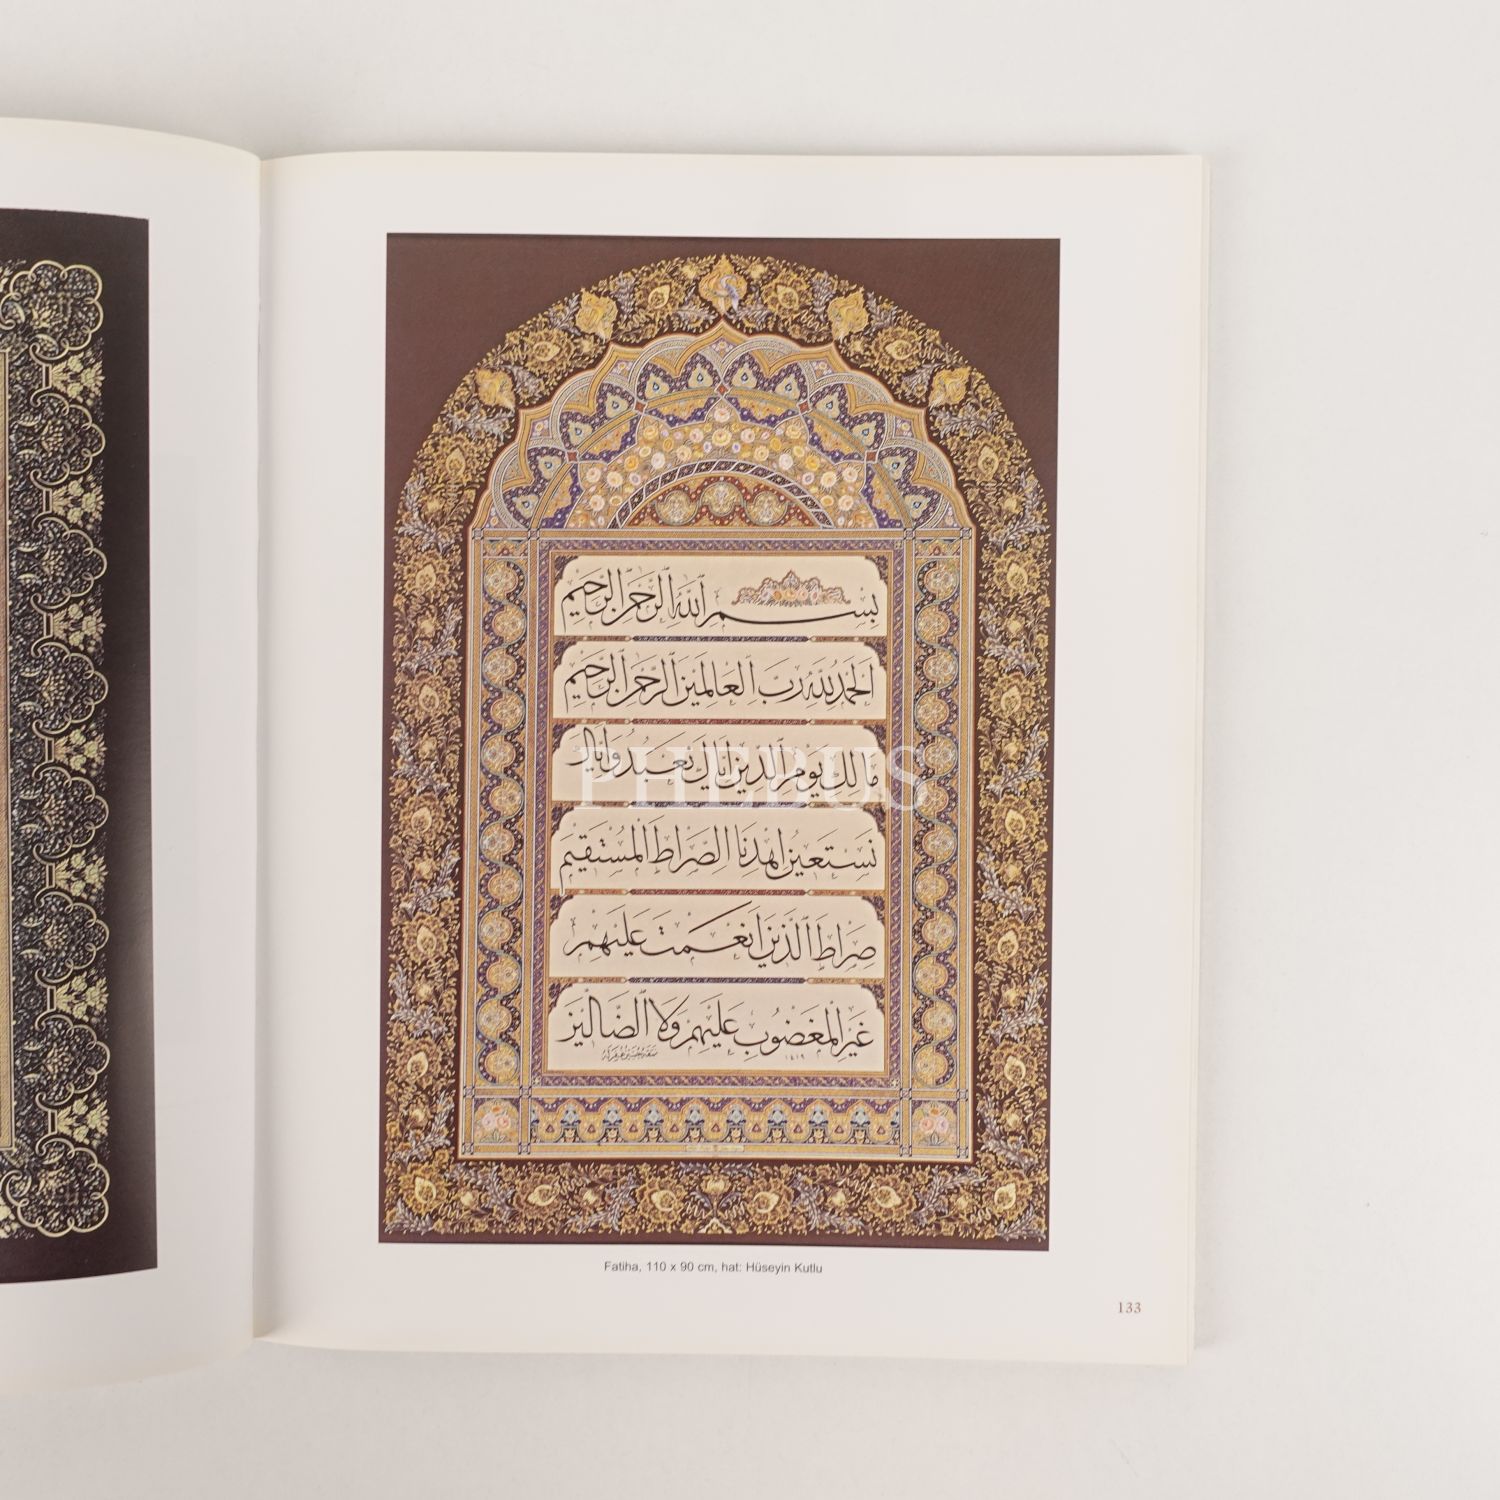 بِسْمِ اللهِ الرَّحْمٰنِ الرَّحِيمِ
اَلْحَمْدُ لِلّٰهِ رَبِّ الْعَالَمِينَ الرَّحْمٰنِ الرَّحِيمِ
مَالِكِ يَوْمِ الدِّينِ اِيَّاكَ نَعْبُدُ وَاِيَّاكَ
نَسْتَعِينُ اِهْدِنَا الصِّرَاطَ الْمُسْتَقِيمَ
صِرَاطَ الَّذِينَ اَنْعَمْتَ عَلَيْهِمْ
غَيْرِ الْمَغْضُوبِ عَلَيْهِمْ وَلَا الضَّالِّينَ
١٤١٩
PHEBUS
Fatiha, 110 x 90 cm, hat: Hüseyin Kutlu
133